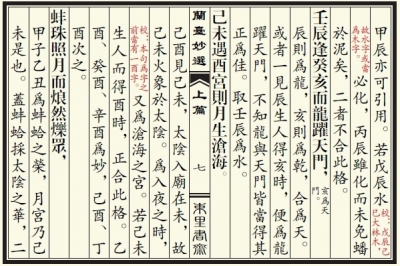 甲辰亦可引用。若戊辰水
故水字或當為木字。
校：戊辰己巳大林木，
必化，丙辰雖化而未免蟠
於泥矣，二者不合此格。
壬辰逢癸亥而龍躍天門，
亥為天門。
辰則為龍，亥則為乾，合為天。
或者一見辰生人得亥時，便為龍
躍天門，不知龍與天門皆當得其
正為佳。取壬辰為水。
己未遇酉宮則月生滄海。
蘭臺妙選
上篇
七
東里書齋
己酉見己未，太陰入廟在未，故
己未火象於太陰。為入夜之時，
又為滄海之宮。若己未
校：本句為字之前當有一酉字。
生人而得酉時，正合此格。乙
酉、癸酉、辛酉為妙，己酉、丁
酉次之。
蚌珠照月而烺然爍眾，
甲子乙丑為蚌蛤之榮，月宮乃己
未是也。蓋蚌蛤採太陰之華，二